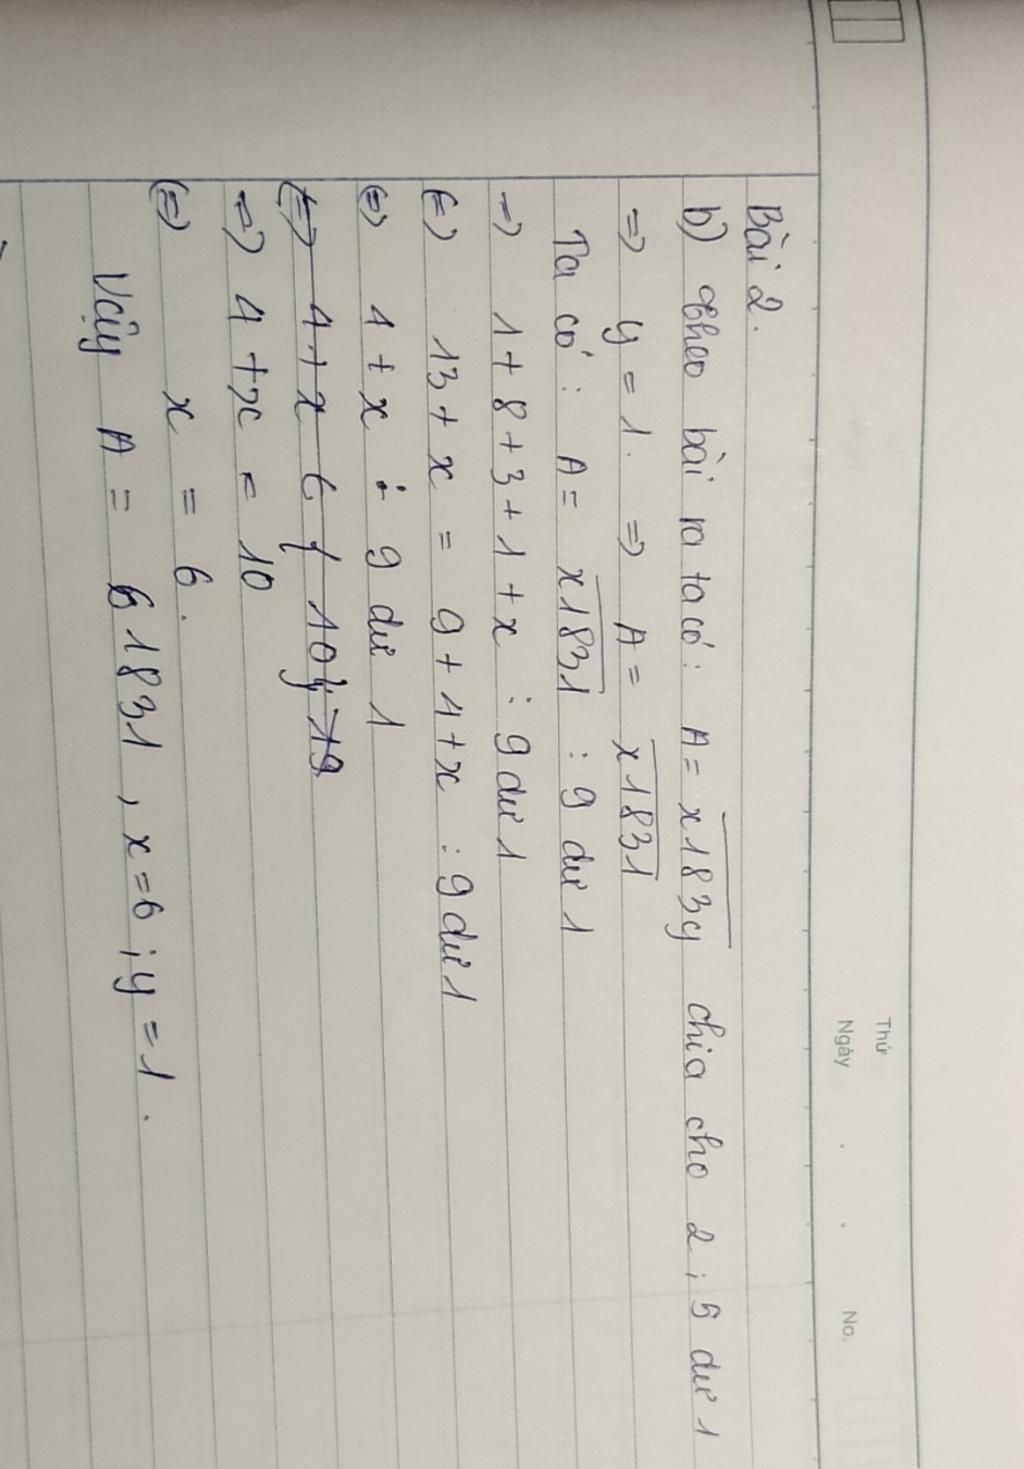 Thứ
Ngày . . No.
Bài 2.
b) Theo bài ra ta có: A = x183y chia cho 2; 5 dư 1
=> y = 1. => A = x1831
Ta có: A = x1831 : 9 dư 1
=> 1 + 8 + 3 + 1 + x : 9 dư 1
(=) 13 + x = 9 + 4 + x : 9 dư 1
(=) 4 + x : 9 dư 1
(=) 4 + x € { 10; 19
=> 4 + x = 10
(=) x = 6.
Vậy A = 61831, x = 6; y = 1.